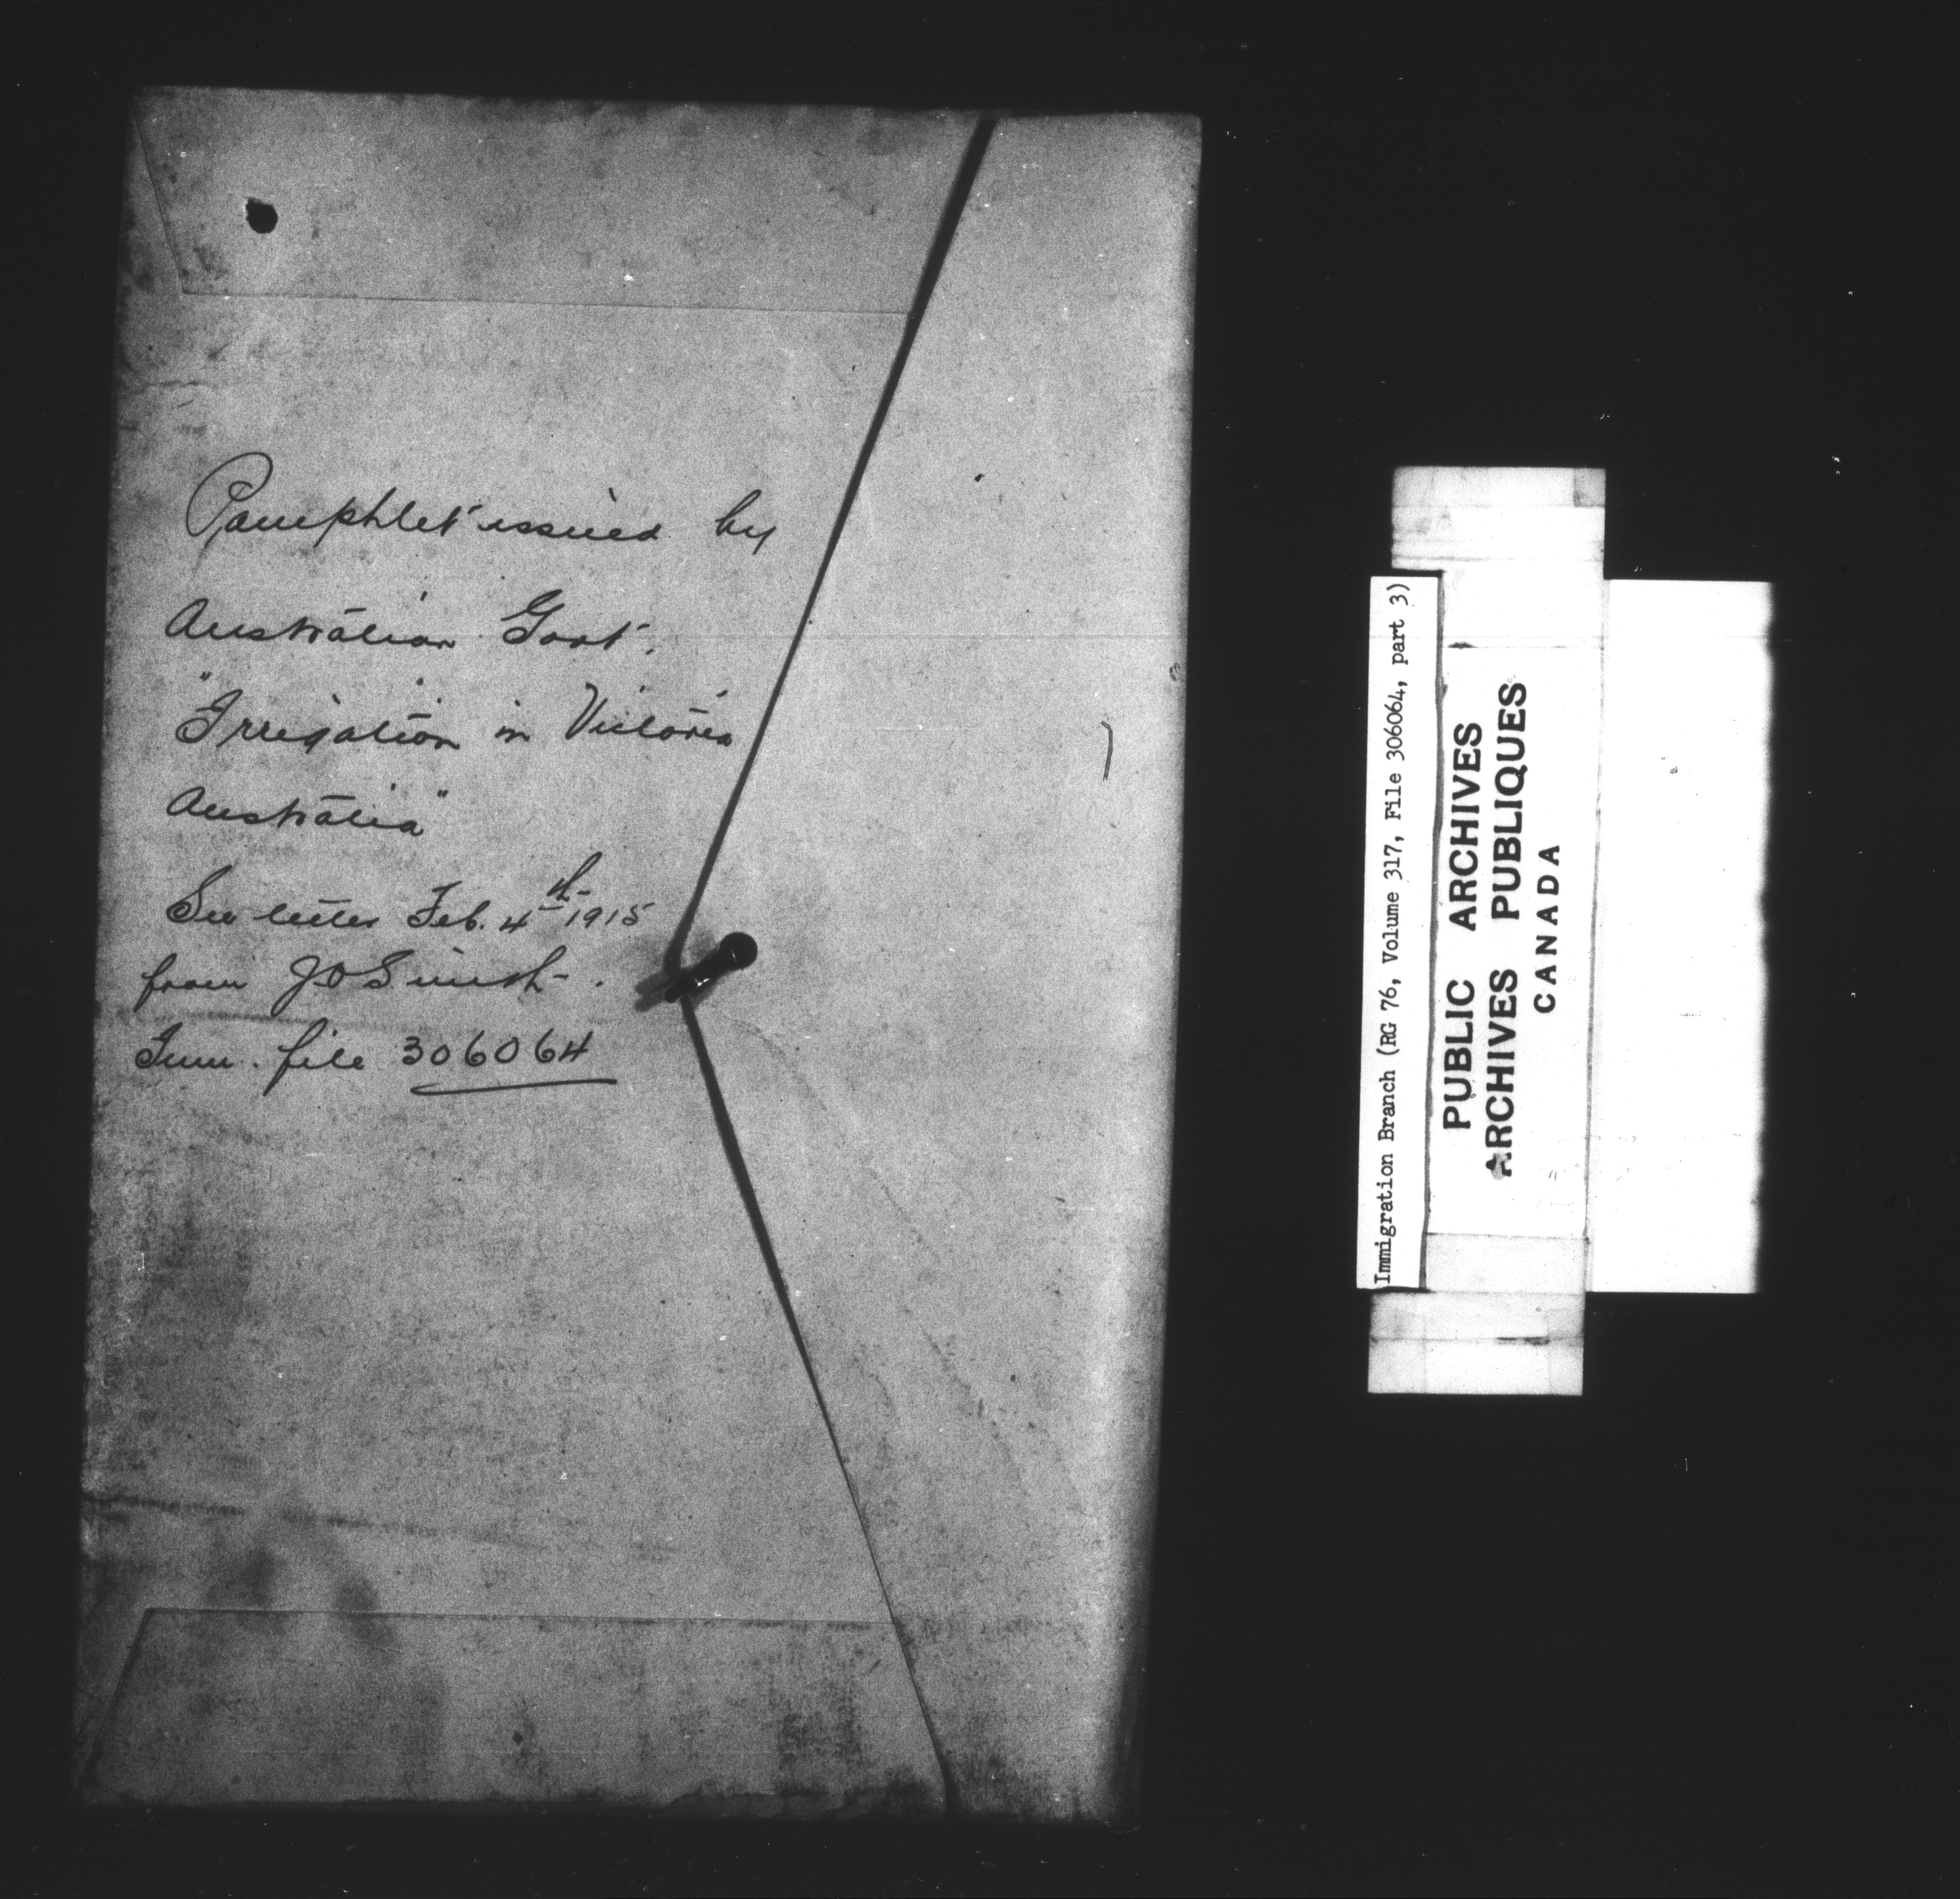 Pamphlet issued by
Australian Govt.
"Irrigation in Victoria
Australia"
See letter Feb. 4th 1915
from J O Smith.
Imm. file 306064
Immigration Branch (RG 76, Volume 317, File 306064, part 3)
PUBLIC ARCHIVES
ARCHIVES PUBLIQUES
CANADA